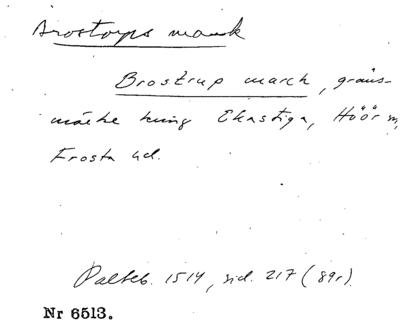 Brostorps mark
Brostrup march, gräns-
märke kring Ekastiga, Höör sn,
Frosta hd.
Palteb. 1514, sid. 217 (89r).
Nr 6513.